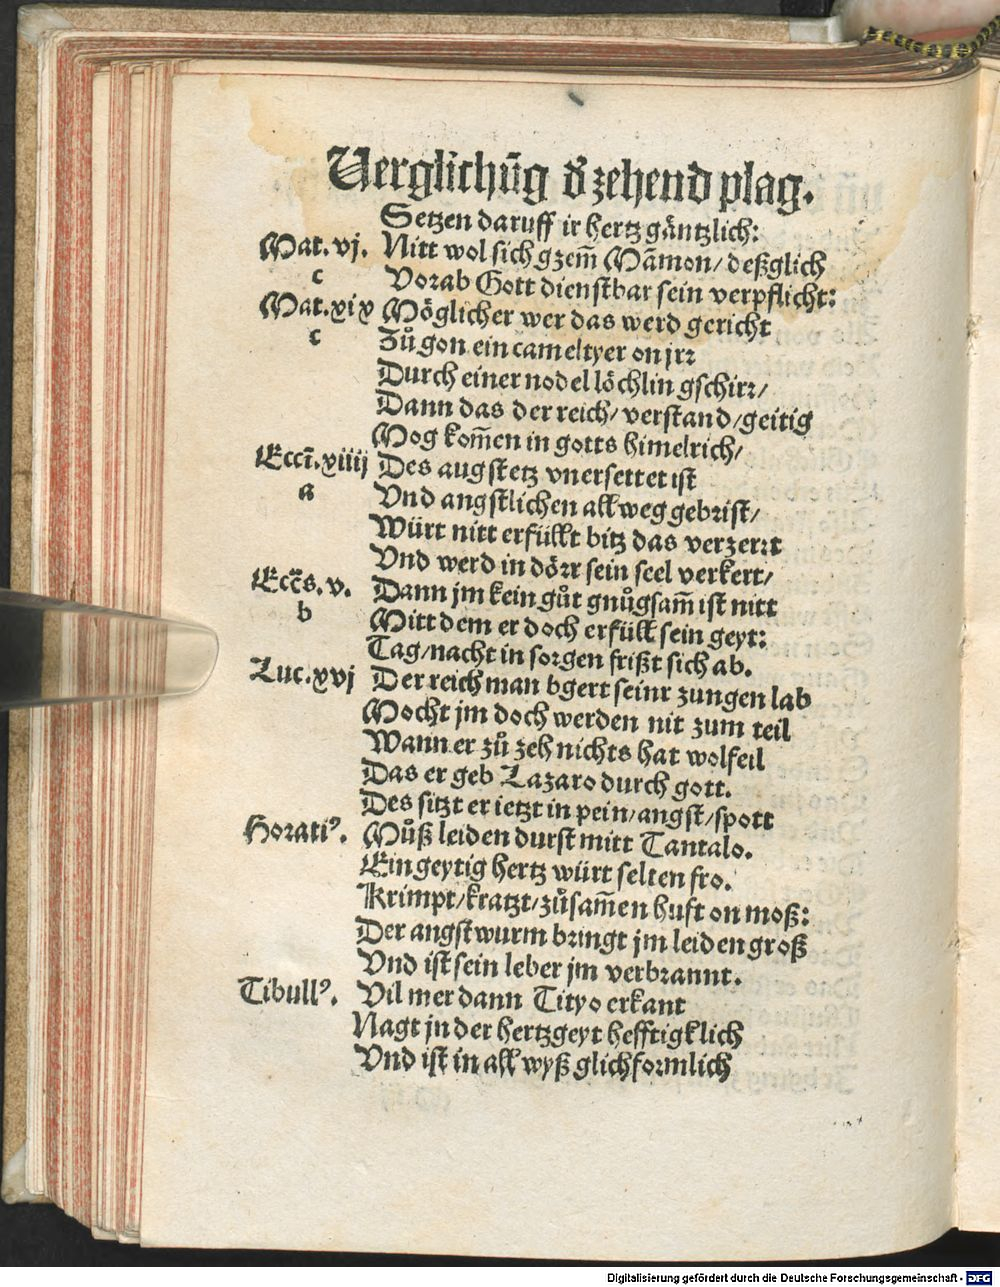 Verglichūg d' zehend plag.
Setzen daruff ir hertz gäntzlich:
Mat. vj. Nitt wol sich gzem̄ Mām̄on/ deßglich
c Vorab Gott dienstbar sein verpflicht:
Mat. xix Möglicher wer das werd gericht
c Zůgon ein cameltyer on jrꝛ
Durch einer nodel löchlin gschirꝛ/
Dann das der reich/ verstand/ geitig
Mog kom̄en in gotts himelrich/
Eccī. xiiij Des aug stetz vnersettet ist
a Vnd angstlichen allweg gebrist/
Würt nitt erfüllt bitz das verzerꝛt
Vnd werd in dörꝛ sein seel verkert/
Ecc̄s. v. Dann jm kein gůt gnůgsam̄ ist nitt
b Mitt dem er doch erfüll sein geyt:
Tag/ nacht in sorgen frißt sich ab.
Luc. xvj Der reich man bgert seinr zungen lab
Mocht jm doch werden nit zum teil
Wann er zů zeh nichts hat wolfeil
Das er geb Lazaro durch gott.
Des sitzt er ietzt in pein/ angst/ spott
Horatiꝰ. Můß leiden durst mitt Tantalo.
Ein geytig hertz würt selten fro.
Krimpt/ kratzt/ zůsam̄en huft on moß:
Der angstwurm bringt jm leiden groß
Vnd ist sein leber jm verbrannt.
Tibullꝰ. Vil mer dann Tityo erkant
Nagt jn der hertzgeyt hefftigklich
Vnd ist in all wyß glichformlich
Digitalisierung gefördert durch die Deutsche Forschungsgemeinschaft - DFG